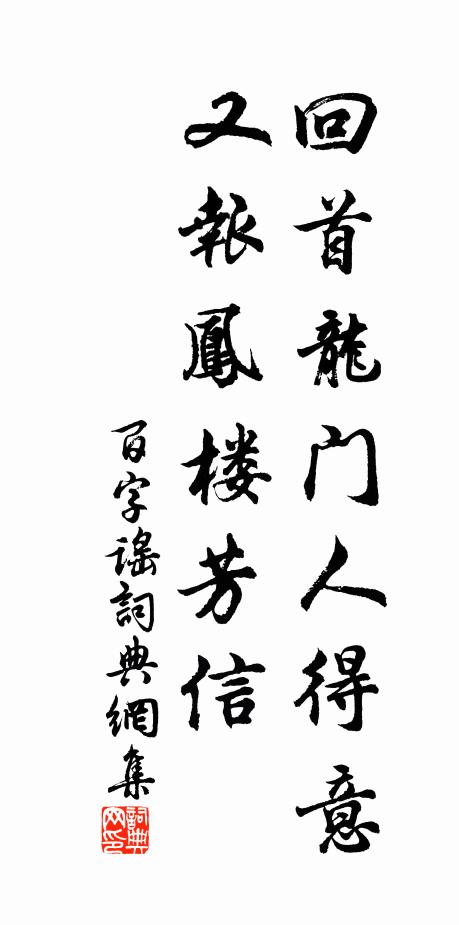 回首龍门人得意
又報鳳楼芳信
百字谣詞典網集
詞典网印